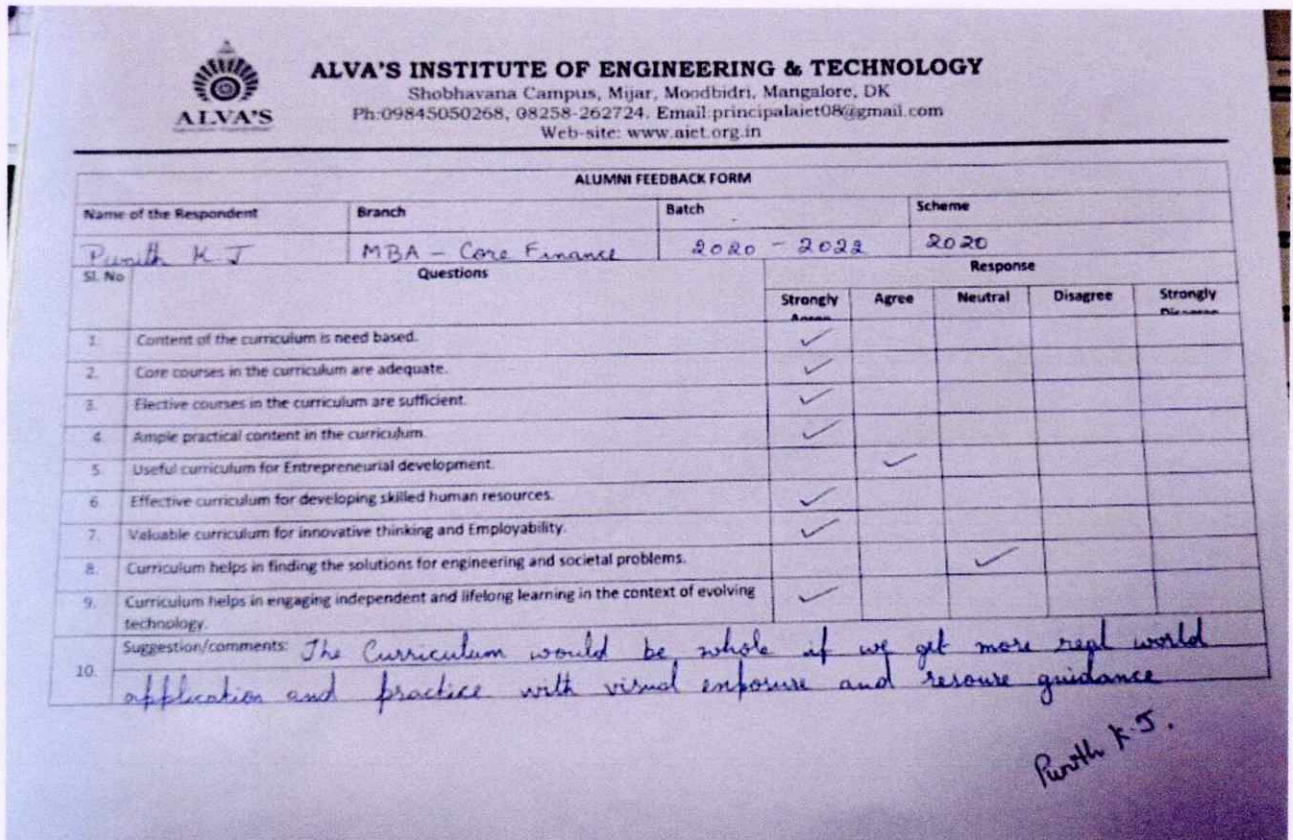 ALVA'S
ALVA'S INSTITUTE OF ENGINEERING & TECHNOLOGY
Shobhavana Campus, Mijar, Moodbidri, Mangalore, DK
Ph:09845050268, 08258-262724. Email:principalaiet08@gmail.com
Web-site: www.aiet.org.in
ALUMNI FEEDBACK FORM
Name of the Respondent Branch Batch Scheme
Punith K J MBA - Core Finance 2020 - 2022 2020
Sl. No Questions Response
Strongly Agree Agree Neutral Disagree Strongly Disagree
1. Content of the curriculum is need based. ✓
2. Core courses in the curriculum are adequate. ✓
3. Elective courses in the curriculum are sufficient. ✓
4. Ample practical content in the curriculum. ✓
5. Useful curriculum for Entrepreneurial development. ✓
6. Effective curriculum for developing skilled human resources. ✓
7. Valuable curriculum for innovative thinking and Employability. ✓
8. Curriculum helps in finding the solutions for engineering and societal problems. ✓
9. Curriculum helps in engaging independent and lifelong learning in the context of evolving
technology. ✓
10. Suggestion/comments: The Curriculum would be whole if we get more real world
application and practice with visual exposure and resoure guidance
Punith K.J.